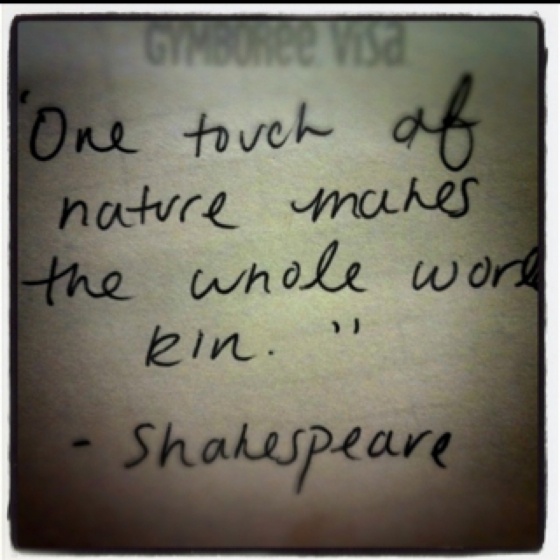 GYMBOREE VISA
"One touch of
nature makes
the whole world
kin."
- Shakespeare